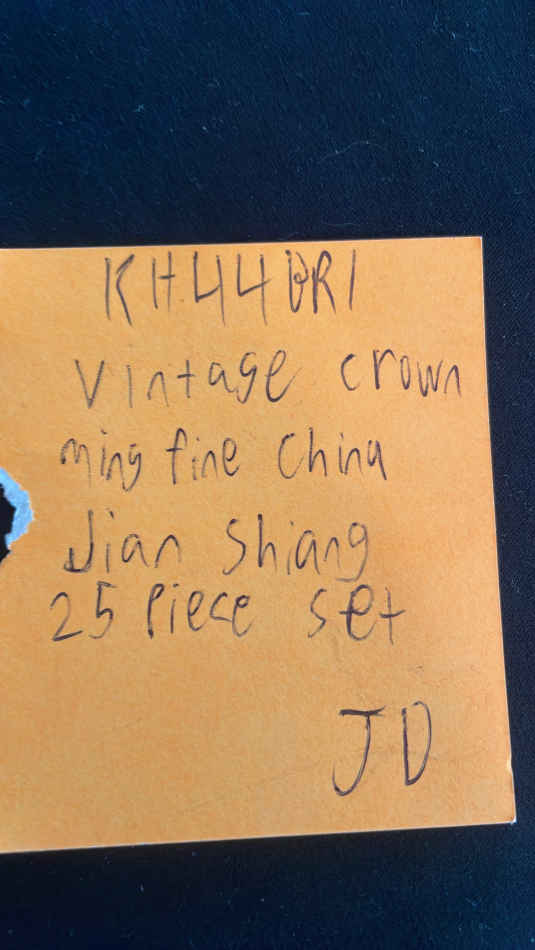 KH44BR1
Vintage crown
ming fine China
Jian Shiang
25 Piece set
JD